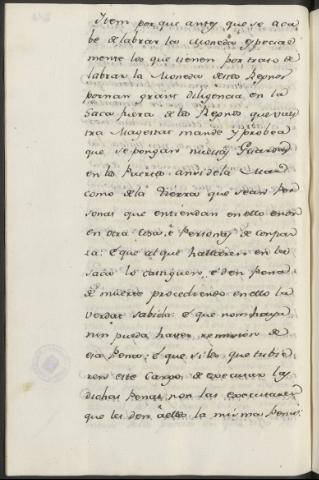 Item por que antes que se aca
be de labrar la Moneda especial
mente los que tienen por trato de
labrar la Moneda destos Reynos
pornan grant diligencia en la
saca fuera de los Reynos que vues
tra Magestat mande y probea
que se pongan nuevas Guardas
en los Puertos ansi de la Mar
como de la tierra que sean Per
sonas que entiendan en ello e non
en otra cosa, e Personas de confian
za: e que al que hallaren en la
saca lo castiguen, e den Pena
de muerte procediendo en ello la
verdat sabida: e que non haya
nin pueda haver remision de
esa Pena: e que si los que tubie
ren este Cargo de executar las
dichas Penas non las executaren
que les den a ellos la misma Pena.